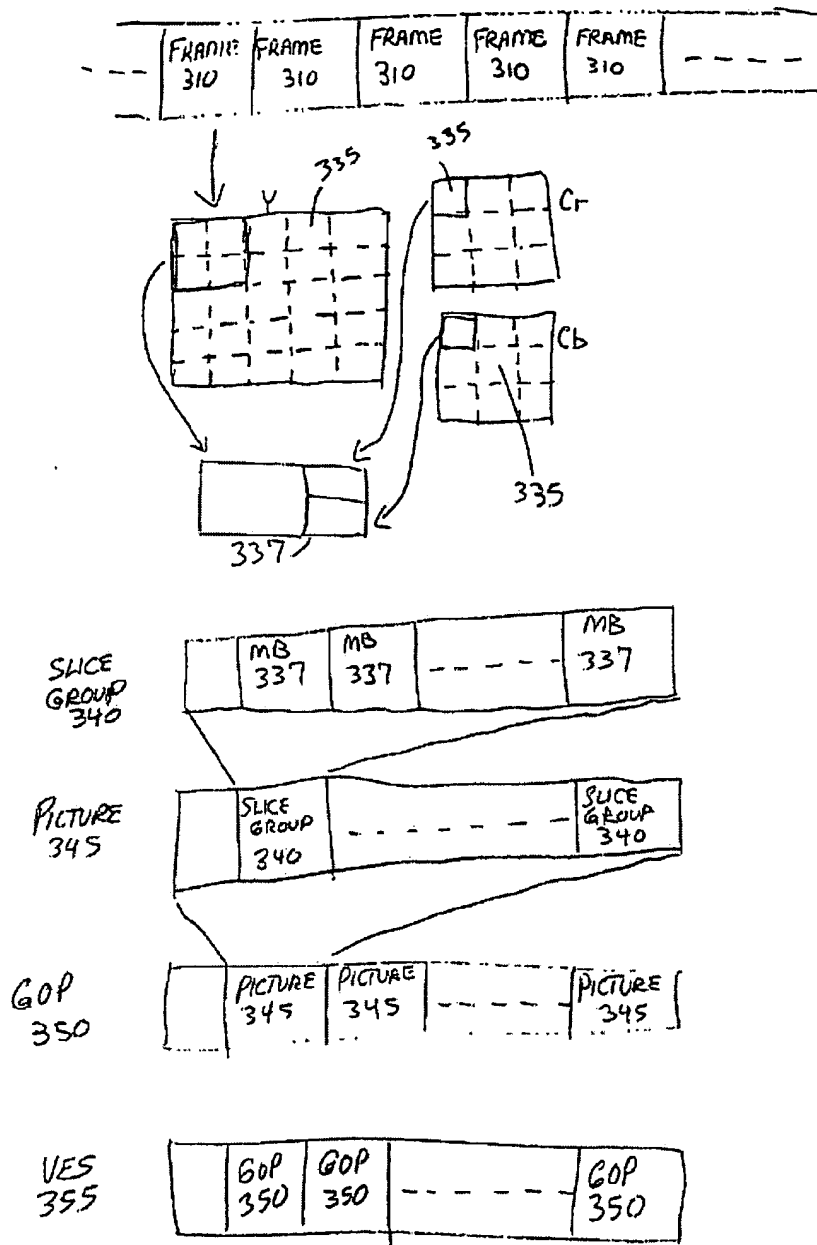 FRAME 310 FRAME 310 FRAME 310 FRAME 310 FRAME 310
335
335
Y
Cr
Cb
335
337
SLICE GROUP 340
MB 337 MB 337 MB 337
PICTURE 345
SLICE GROUP 340 SLICE GROUP 340
GOP 350
PICTURE 345 PICTURE 345 PICTURE 345
VES 355
GOP 350 GOP 350 GOP 350